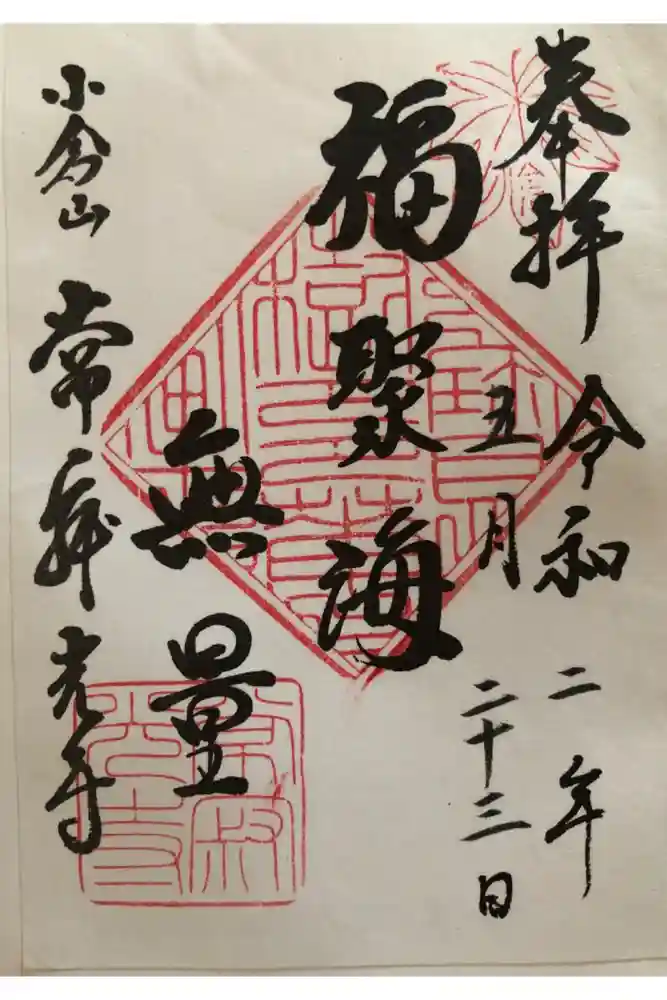 奉拝 令和二年
五月二十三日
福聚海
無量
小倉山 常寂光寺